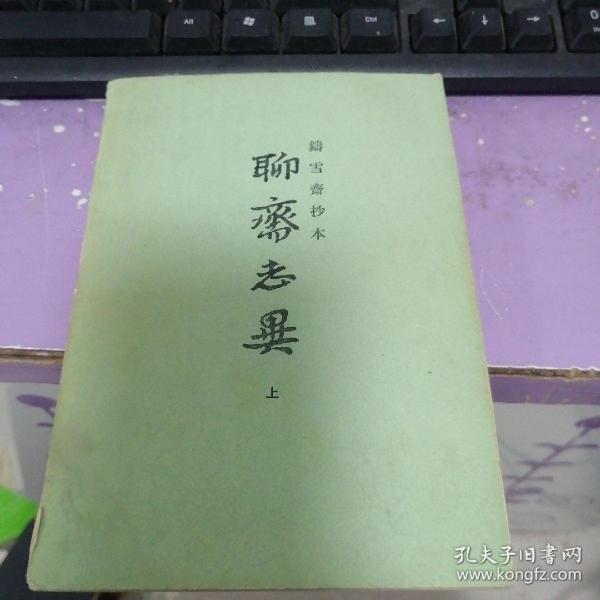 Alt
Ctrl
鑄雪齋抄本
聊齋志異
上
孔夫子旧書网
www.kongfz.com